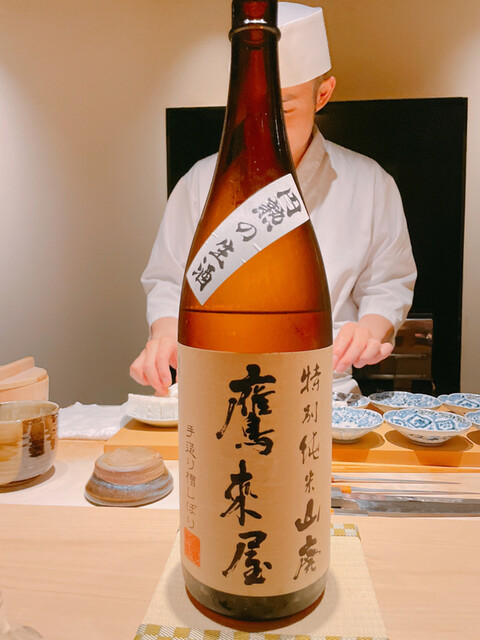 円熟の生酒
特別純米山廃
鷹来屋
手造り槽しぼり